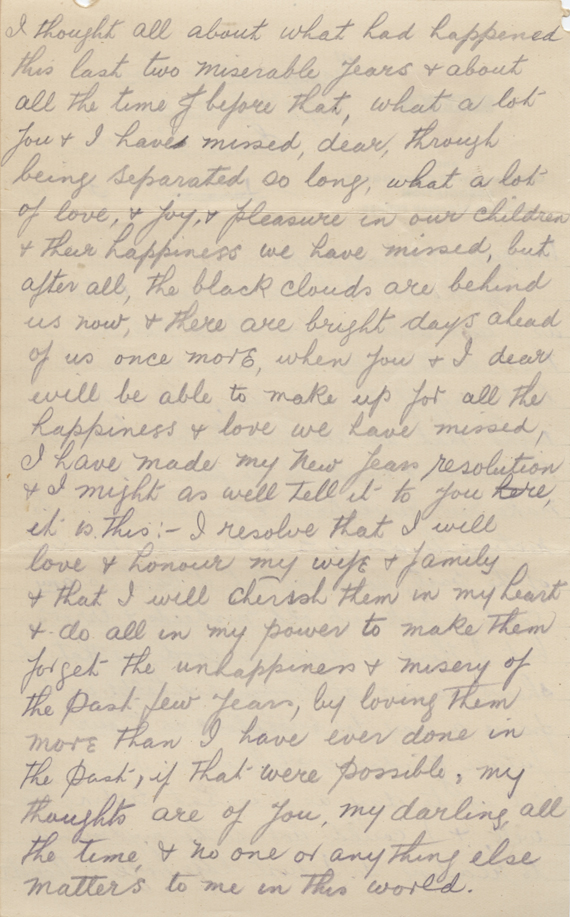 I thought all about what had happened
this last two miserable years & about
all the time before that, what a lot
you & I have missed, dear, through
being separated so long, what a lot
of love, & joy, & pleasure in our children
& their happiness we have missed, but
after all, the black clouds are behind
us now, & there are bright days ahead
of us once more, when you & I dear
will be able to make up for all the
happiness & love we have missed,
I have made my New Years resolution
& I might as well tell it to you here,
it is this:- I resolve that I will
love & honour my wife & family
& that I will cherish them in my heart
& do all in my power to make them
forget the unhappiness & misery of
the past few years, by loving them
more than I have ever done in
the past, if that were possible, my
thoughts are of you, my darling, all
the time, & no one or anything else
matters to me in this world.